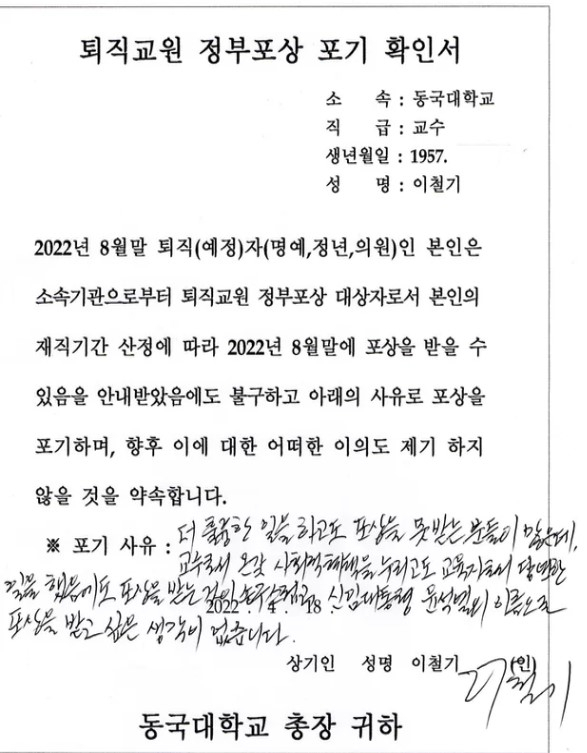 퇴직교원 정부포상 포기 확인서
소 속 : 동국대학교
직 급 : 교수
생년월일 : 1957.
성 명 : 이철기
2022년 8월말 퇴직(예정)자(명예,정년,의원)인 본인은
소속기관으로부터 퇴직교원 정부포상 대상자로서 본인의
재직기간 산정에 따라 2022년 8월말에 포상을 받을 수
있음을 안내받았음에도 불구하고 아래의 사유로 포상을
포기하며, 향후 이에 대한 어떠한 이의도 제기 하지
않을 것을 약속합니다.
※ 포기 사유 : 더 훌륭한 일을 하고도 포상을 못받는 분들이 많은데,
교수로서 온갖 사회적 혜택을 누리고도 교육자로서 당연한
일을 했음에도 포상을 받는 것이 송구스럽고, 신임 대통령 윤석열의 이름으로
2022. 4. 18.
포상을 받고 싶은 생각이 없습니다.
상기인 성명 이철기 (인)
이철기
동국대학교 총장 귀하